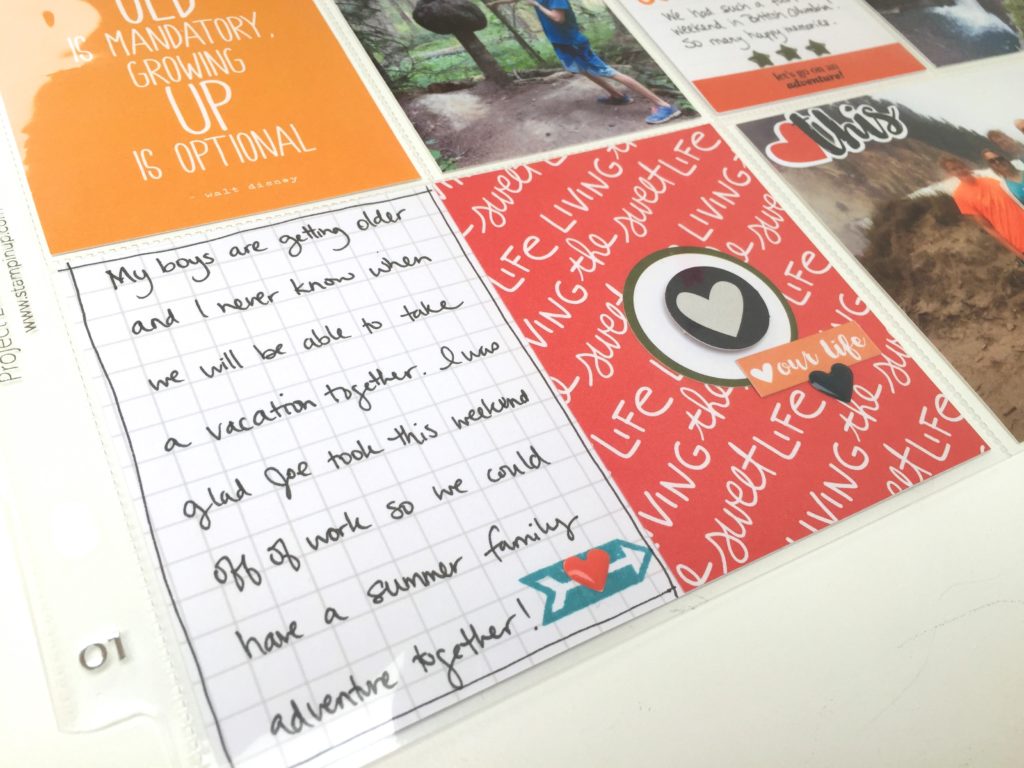 OLD
IS MANDATORY.
GROWING
UP
IS OPTIONAL
- walt disney
We had such a
weekend in British Columbia!
So many happy memories.
let's go on an
adventure!
this
My boys are getting older
and I never know when
we will be able to take
a vacation together. I was
glad Joe took this weekend
off of work so we could
have a summer family
adventure together!
LIVING the
sweet LIFE
LIVING the
sweet LIFE
LIVING the
sweet LIFE
LIVING the
sweet LIFE
our life
www.stampinup.com